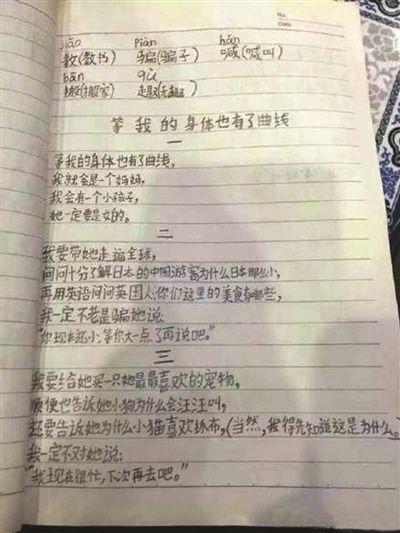 No.
Date.
jiāo piàn hǎn
教(教书) 骗(骗子) 喊(喊叫)
bān qù
搬(搬家) 趣(无趣)
等我的身体也有了曲线
一
等我的身体也有了曲线,
我就会是一个妈妈,
我会有一个小孩子,
她一定要是女的。
二
我要带她走遍全球,
问问十分了解日本的中国游客为什么日本那么小,
再用英语问问英国人:你们这里的美食有哪些,
我一定不老是骗她说:
"你现在还小,等你大一点了再说吧。"
三
我要给她买一只她最最喜欢的宠物,
顺便也告诉她小狗为什么会汪汪叫,
还要告诉她为什么小猫喜欢抓布,(当然,我得先知道这是为什么。)
我一定不对她说:
"我现在很忙,下次再去吧。"